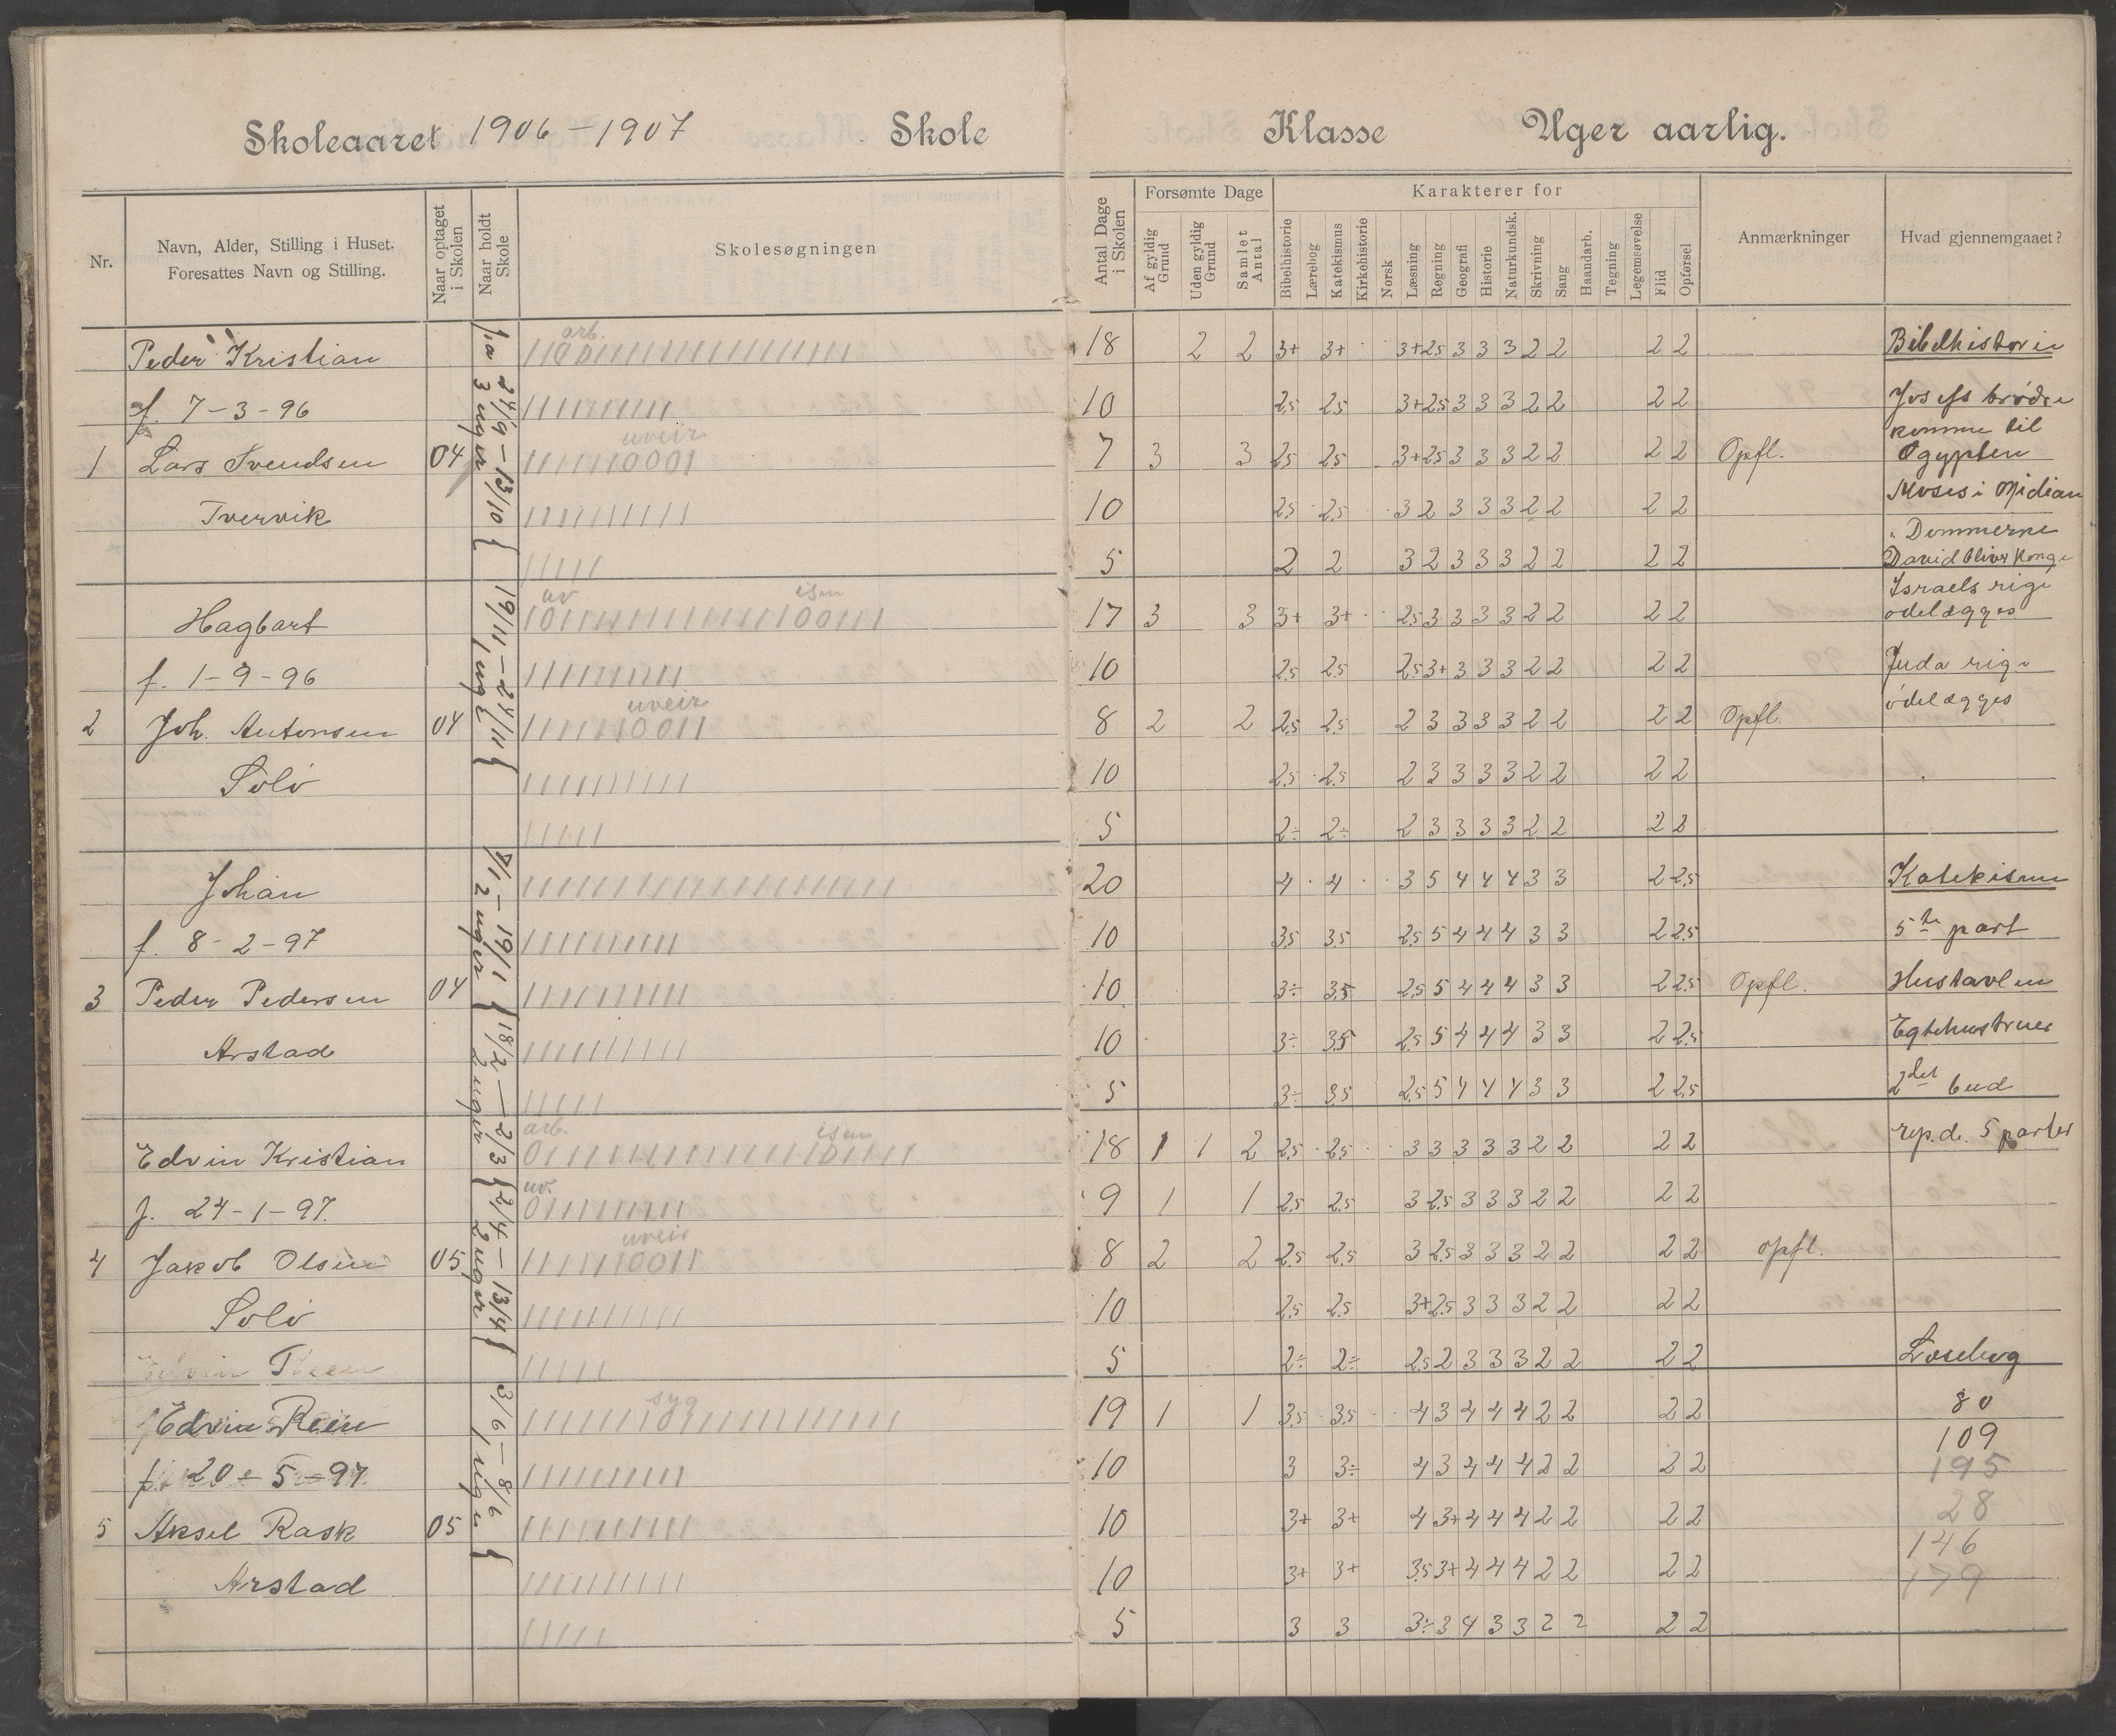 Skoleaaret 1906-1907 Skole Klasse Uger aarlig.
Nr.
Navn, Alder, Stilling i Huset.
Foresattes Navn og Stilling.
Naar optaget
i Skolen
Naar holdt
Skole
Skolesøgningen
Antal Dage
i Skolen
Forsømte Dage
Af gyldig
Grund
Uden gyldig
Grund
Samlet
Antal
Karakterer for
Bibelhistorie
Lærebog
Katekismus
Kirkehistorie
Norsk
Læsning
Regning
Geografi
Historie
Naturkundsk.
Skrivning
Sang
Haandarb.
Tegning
Legemsøvelse
Flid
Opførsel
Anmærkninger
Hvad gjennemgaaet?
24/9 - 13/10
3 uger
19/11 - 24/11
1 uge
- 19/1
2 uger
18/2 - 2/3
2 uger
2/4 - 13/4
2 uger
3/6 - 8/6
1 uge
arb.
Peder Kristian 18 2 2 3+ 3+ 3+ 2.5 3 3 3 2 2 2 2 Bibelhistorie
f. 7-3-96 10 2.5 2.5 3+ 2.5 3 3 3 2 2 2 2 Josefs brødre
uveir komme til
1 Lars Svendsen 04 7 3 3 2.5 2.5 3+ 2.5 3 3 3 2 2 2 2 Opfl. Ægypten
Tvervik 10 2.5 2.5 3 2 3 3 3 2 2 2 2 Moses i Midian
Dommerne
5 2 2 3 2 3 3 3 2 2 2 2 David bliver Konge
uv isen Israels rige
Hagbart 17 3 3 3+ 3+ 2.5 3 3 3 3 2 2 2 2 ødelægges
f. 1-9-96 10 2.5 2.5 2.5 3+ 3 3 3 2 2 2 2 Juda rige
uveir ødelægges
2 Joh. Antonsen 04 8 2 2 2.5 2.5 2 3 3 3 3 2 2 2 2 Opfl.
Solø 10 2.5 2.5 2 3 3 3 3 2 2 2 2
5 2÷ 2÷ 2 3 3 3 3 2 2 2 2
Johan 20 4 4 3 5 4 4 4 3 3 2 2.5 Katekisme
f. 8-2-97 10 3.5 3.5 2.5 5 4 4 4 3 3 2 2.5 5te part
3 Peder Pedersen 04 10 3÷ 3.5 2.5 5 4 4 4 3 3 2 2.5 Opfl. Hustavlen
Arstad 10 3÷ 3.5 2.5 5 4 4 4 3 3 2 2.5 Egtehustruer
5 3÷ 3.5 2.5 5 4 4 4 3 3 2 2.5 2det bud
arb. isen
Edvin Kristian 18 1 1 2 2.5 2.5 3 3 3 3 3 2 2 2 2 rep. de 5 parter
uv.
f. 24-1-97. 9 1 1 2.5 2.5 3 2.5 3 3 3 2 2 2 2
uveir
4 Jakob Olsen 05 8 2 2 2.5 2.5 3 2.5 3 3 3 2 2 2 2 opfl.
Solø 10 2.5 2.5 3+ 2.5 3 3 3 2 2 2 2
5 2÷ 2÷ 2.5 2 3 3 3 2 2 2 2 Læsebog
syg
Edvin Reen 19 1 1 3.5 3.5 4 3 4 4 4 2 2 2 2 80
109
f. 20-5-97 10 3 3÷ 4 3 4 4 4 2 2 2 2 195
28
5 Aksel Rask 05 10 3+ 3+ 4 3+ 4 4 4 2 2 2 2 146
Arstad 10 3+ 3+ 3.5 3+ 4 4 4 2 2 2 2 179
5 3 3 3÷ 3 4 3 3 2 2 2 2